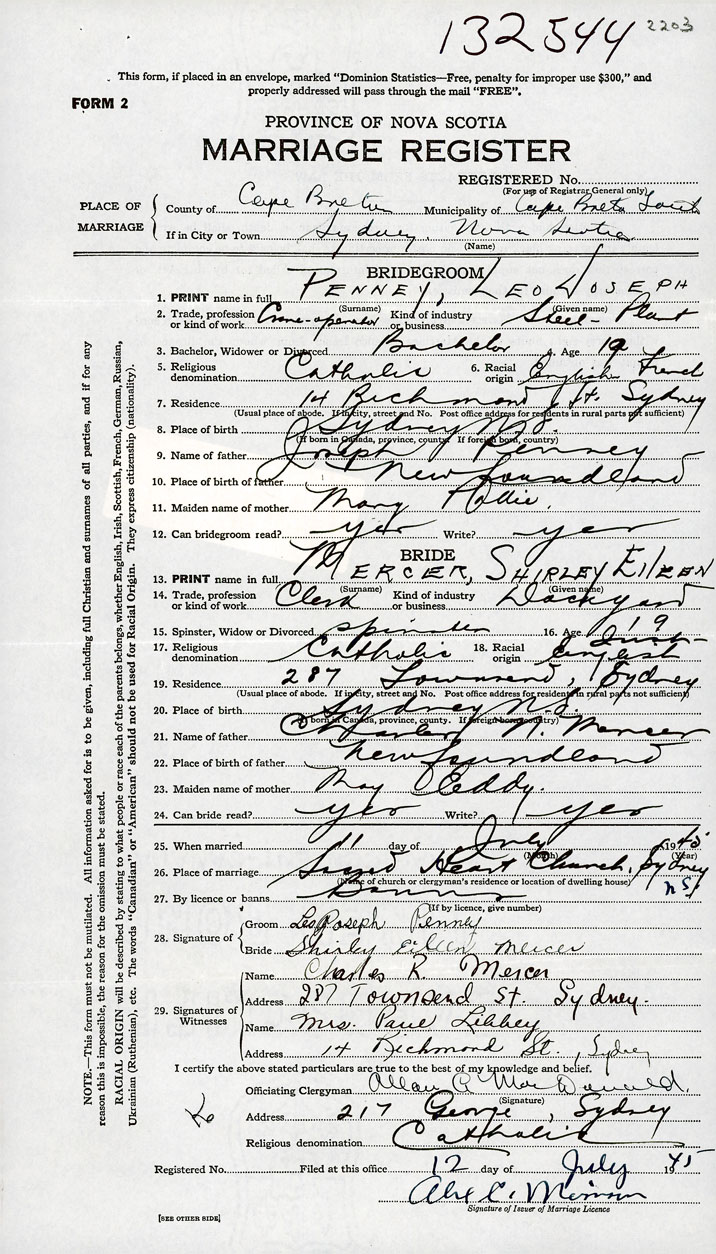 132544 2203
This form, if placed in an envelope, marked "Dominion Statistics—Free, penalty for improper use $300," and
properly addressed will pass through the mail "FREE".
FORM 2
PROVINCE OF NOVA SCOTIA
MARRIAGE REGISTER
REGISTERED No.
(For use of Registrar General only)
PLACE OF MARRIAGE
County of Cape Breton Municipality of Cape Breton South
If in City or Town Sydney, Nova Scotia
(Name)
BRIDEGROOM
1. PRINT name in full PENNEY, LEO JOSEPH
(Surname) (Given name)
2. Trade, profession or kind of work Crane-operator Kind of industry or business Steel-Plant
3. Bachelor, Widower or Divorced Bachelor 4. Age 19
5. Religious denomination Catholic 6. Racial origin English French
7. Residence 14 Richmond St. Sydney
(Usual place of abode. If in city, street and No. Post office address for residents in rural parts not sufficient)
8. Place of birth Sydney N.S.
(If born in Canada, province, county. If foreign born, country)
9. Name of father Joseph Penney
10. Place of birth of father Newfoundland
11. Maiden name of mother Mary
12. Can bridegroom read? yes Write? yes
BRIDE
13. PRINT name in full MERCER, SHIRLEY EILEEN
(Surname) (Given name)
14. Trade, profession or kind of work Clerk Kind of industry or business Dockyard
15. Spinster, Widow or Divorced spinster 16. Age 19
17. Religious denomination Catholic 18. Racial origin Irish-English
19. Residence 287 Townsend, Sydney
(Usual place of abode. If in city, street and No. Post office address for residents in rural parts not sufficient)
20. Place of birth Sydney N.S.
(If born in Canada, province, county. If foreign born country)
21. Name of father Charles R. Mercer
22. Place of birth of father Newfoundland
23. Maiden name of mother May Eddy.
24. Can bride read? yes Write? yes
25. When married 11 day of July 1945
(Month) (Year)
26. Place of marriage Sacred Heart Church, Sydney N.S.
(Name of church or clergyman's residence or location of dwelling house)
27. By licence or banns Banns
(If by licence, give number)
28. Signature of
Groom Leo Joseph Penney
Bride Shirley Eileen Mercer
29. Signatures of Witnesses
Name Charles R. Mercer
Address 287 Townsend St. Sydney.
Name Mrs. Paul Libbey
Address 14 Richmond St., Sydney
I certify the above stated particulars are true to the best of my knowledge and belief.
Officiating Clergyman Allan A. MacDonald.
(Signature)
Address 217 George, Sydney
Religious denomination Catholic
Registered No. Filed at this office 12 day of July 1945
Signature of Issuer of Marriage Licence
[SEE OTHER SIDE]
NOTE.—This form must not be mutilated. All information asked for is to be given, including full Christian and surnames of all parties, and if for any
reason this is impossible, the reason for the omission must be stated.
RACIAL ORIGIN will be described by stating to what people or race each of the parents belongs, whether English, Irish, Scottish, French, German, Russian,
Ukrainian (Ruthenian), etc. The words "Canadian" or "American" should not be used for Racial Origin. They express citizenship (nationality).